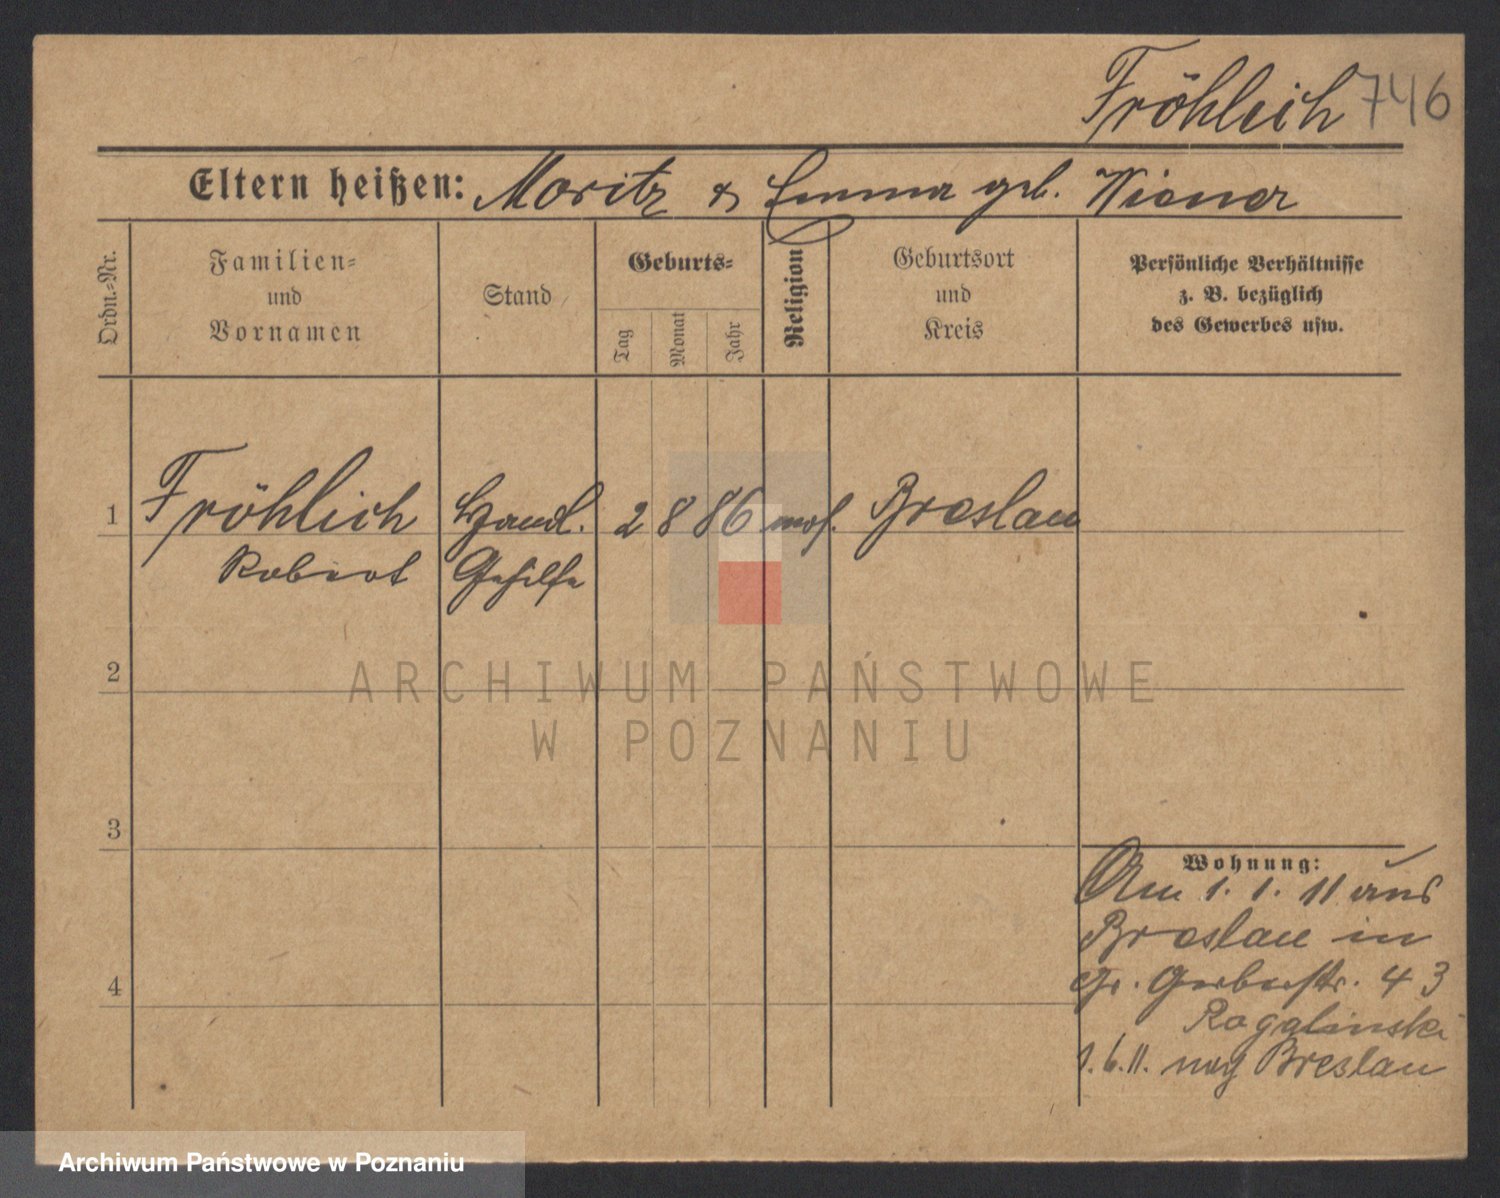 Fröhlich 746
Eltern heißen: Moritz & Emma geb. Wiener
Ordn.-Nr.
Familien-
und
Vornamen
Stand
Geburts-
Tag
Monat
Jahr
Religion
Geburtsort
und
Kreis
Persönliche Verhältnisse
z. B. bezüglich
des Gewerbes usw.
1 Fröhlich Handl. 2 8 86 mos. Breslau
Robert Gehilfe
2
ARCHIWUM PAŃSTWOWE
W POZNANIU
3
Wohnung:
Am 1. 1. 11 aus
Breslau in
4
Gr. Gerberstr. 43
Rogalinski
1.6.11. nach Breslau
Archiwum Państwowe w Poznaniu